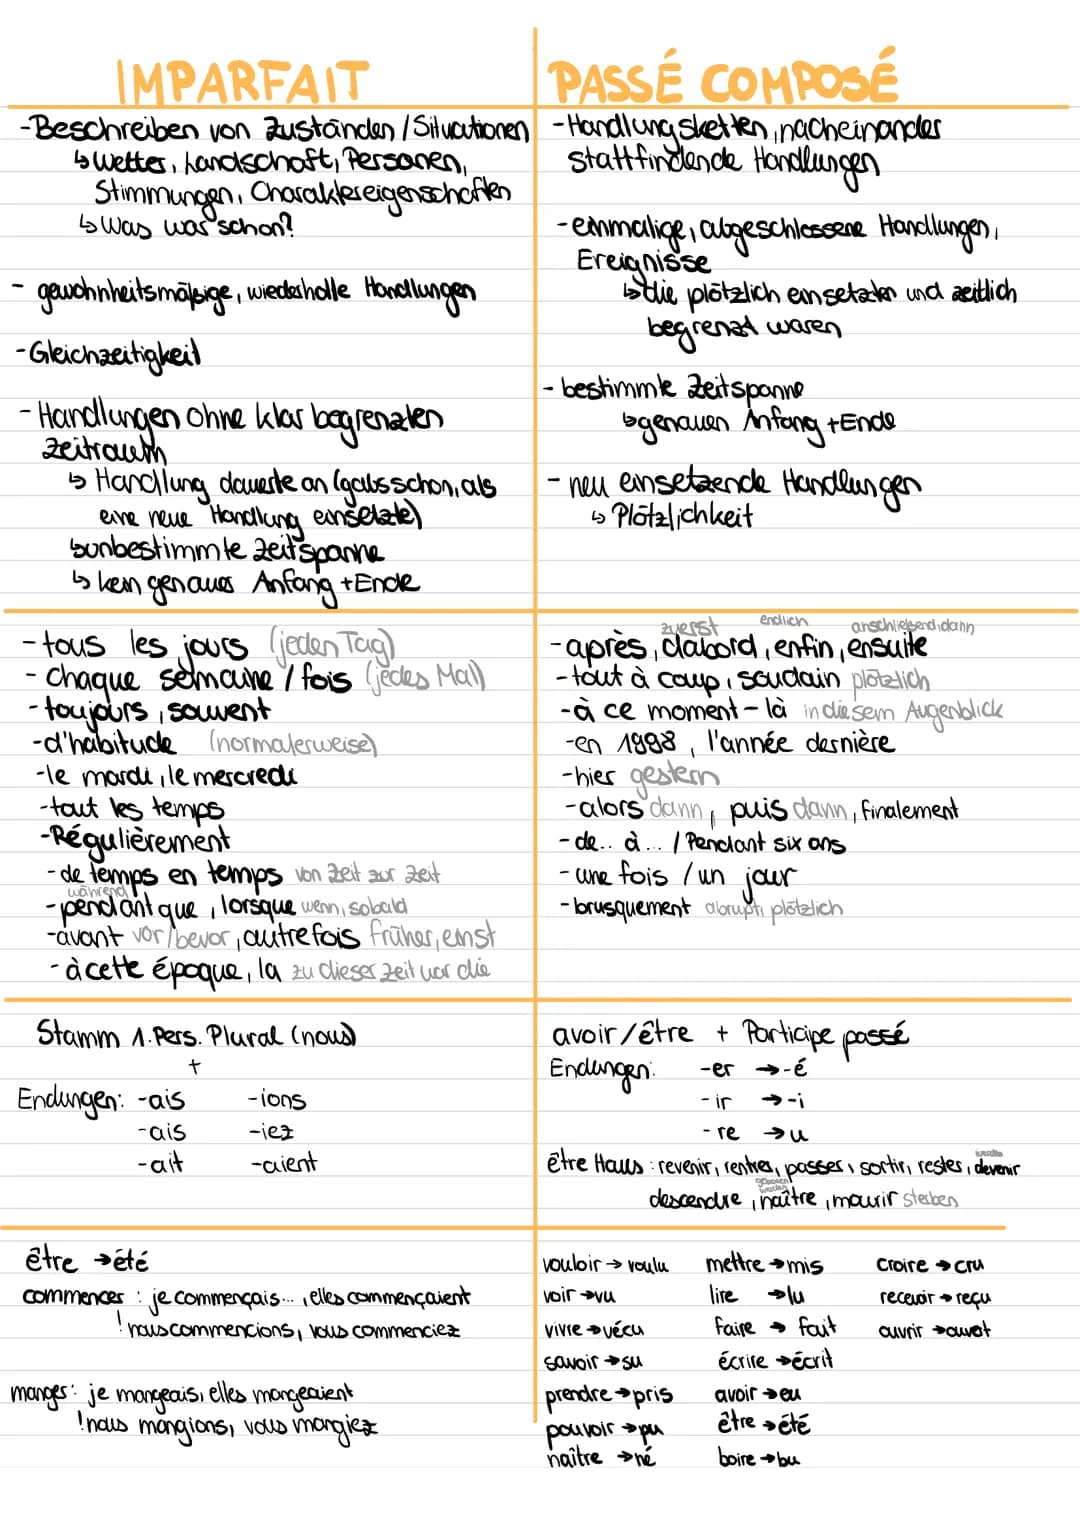 IMPARFAIT
-Beschreiben von Zuständen / Situationen
↳ Wetter, Landschaft, Personen,
Stimmungen, Charaktereigenschaften
↳ Was war schon?
- gewohnheitsmäßige, wiederholte Handlungen
- Gleichzeitigkeit
- Handlungen ohne klar begrenzten
Zeitraum
↳ Handlung dauerte an (gabs schon, als
eine neue Handlung einsetzte)
↳ unbestimmte Zeitspanne
↳ kein genaues Anfang + Ende
PASSÉ COMPOSÉ
- Handlungsketten, nacheinander
stattfindende Handlungen
- einmalige, abgeschlossene Handlungen,
Ereignisse
↳ die plötzlich einsetzten und zeitlich
begrenzt waren
- bestimmte Zeitspanne
↳ genauen Anfang + Ende
- neu einsetzende Handlungen
↳ Plötzlichkeit
- tous les jours (jeden Tag)
- chaque semaine / fois (jedes Mal)
- toujours, souvent
- d'habitude (normalerweise)
- le mardi, le mercredi
- tout les temps
- Régulièrement
- de temps en temps von Zeit zur Zeit
während
- pendant que, lorsque wenn, sobald
- avant vor/bevor, autrefois früher, einst
- à cette époque, la zu dieser Zeit vor die
zuerst endlich anschließend, dann
- après, dabord, enfin, ensuite
- tout à coup, soudain plötzlich
- à ce moment-là in diesem Augenblick
- en 1998, l'année dernière
- hier gestern
- alors dann, puis dann, finalement
- de.. à... / Pendant six ans
- une fois / un jour
- brusquement abrupt, plötzlich
Stamm 1. Pers. Plural (nous)
+
Endungen: -ais -ions
-ais -iez
-ait -aient
avoir/être + Participe passé
Endungen: -er → -é
-ir → -i
-re → u
werden
être Haus: revenir, rentrer, passer, sortir, rester, devenir
geboren
werden
descendre, naître, mourir sterben
être → été
commencer: je commençais..., elles commençaient
! nous commencions, vous commenciez
manger: je mangeais, elles mangeaient
! nous mangions, vous mangiez
vouloir → voulu mettre → mis croire → cru
voir → vu lire → lu recevoir → reçu
vivre → vécu faire → fait ouvrir → ouvert
savoir → su écrire → écrit
prendre → pris avoir → eu
pouvoir → pu être → été
naître → né boire → bu